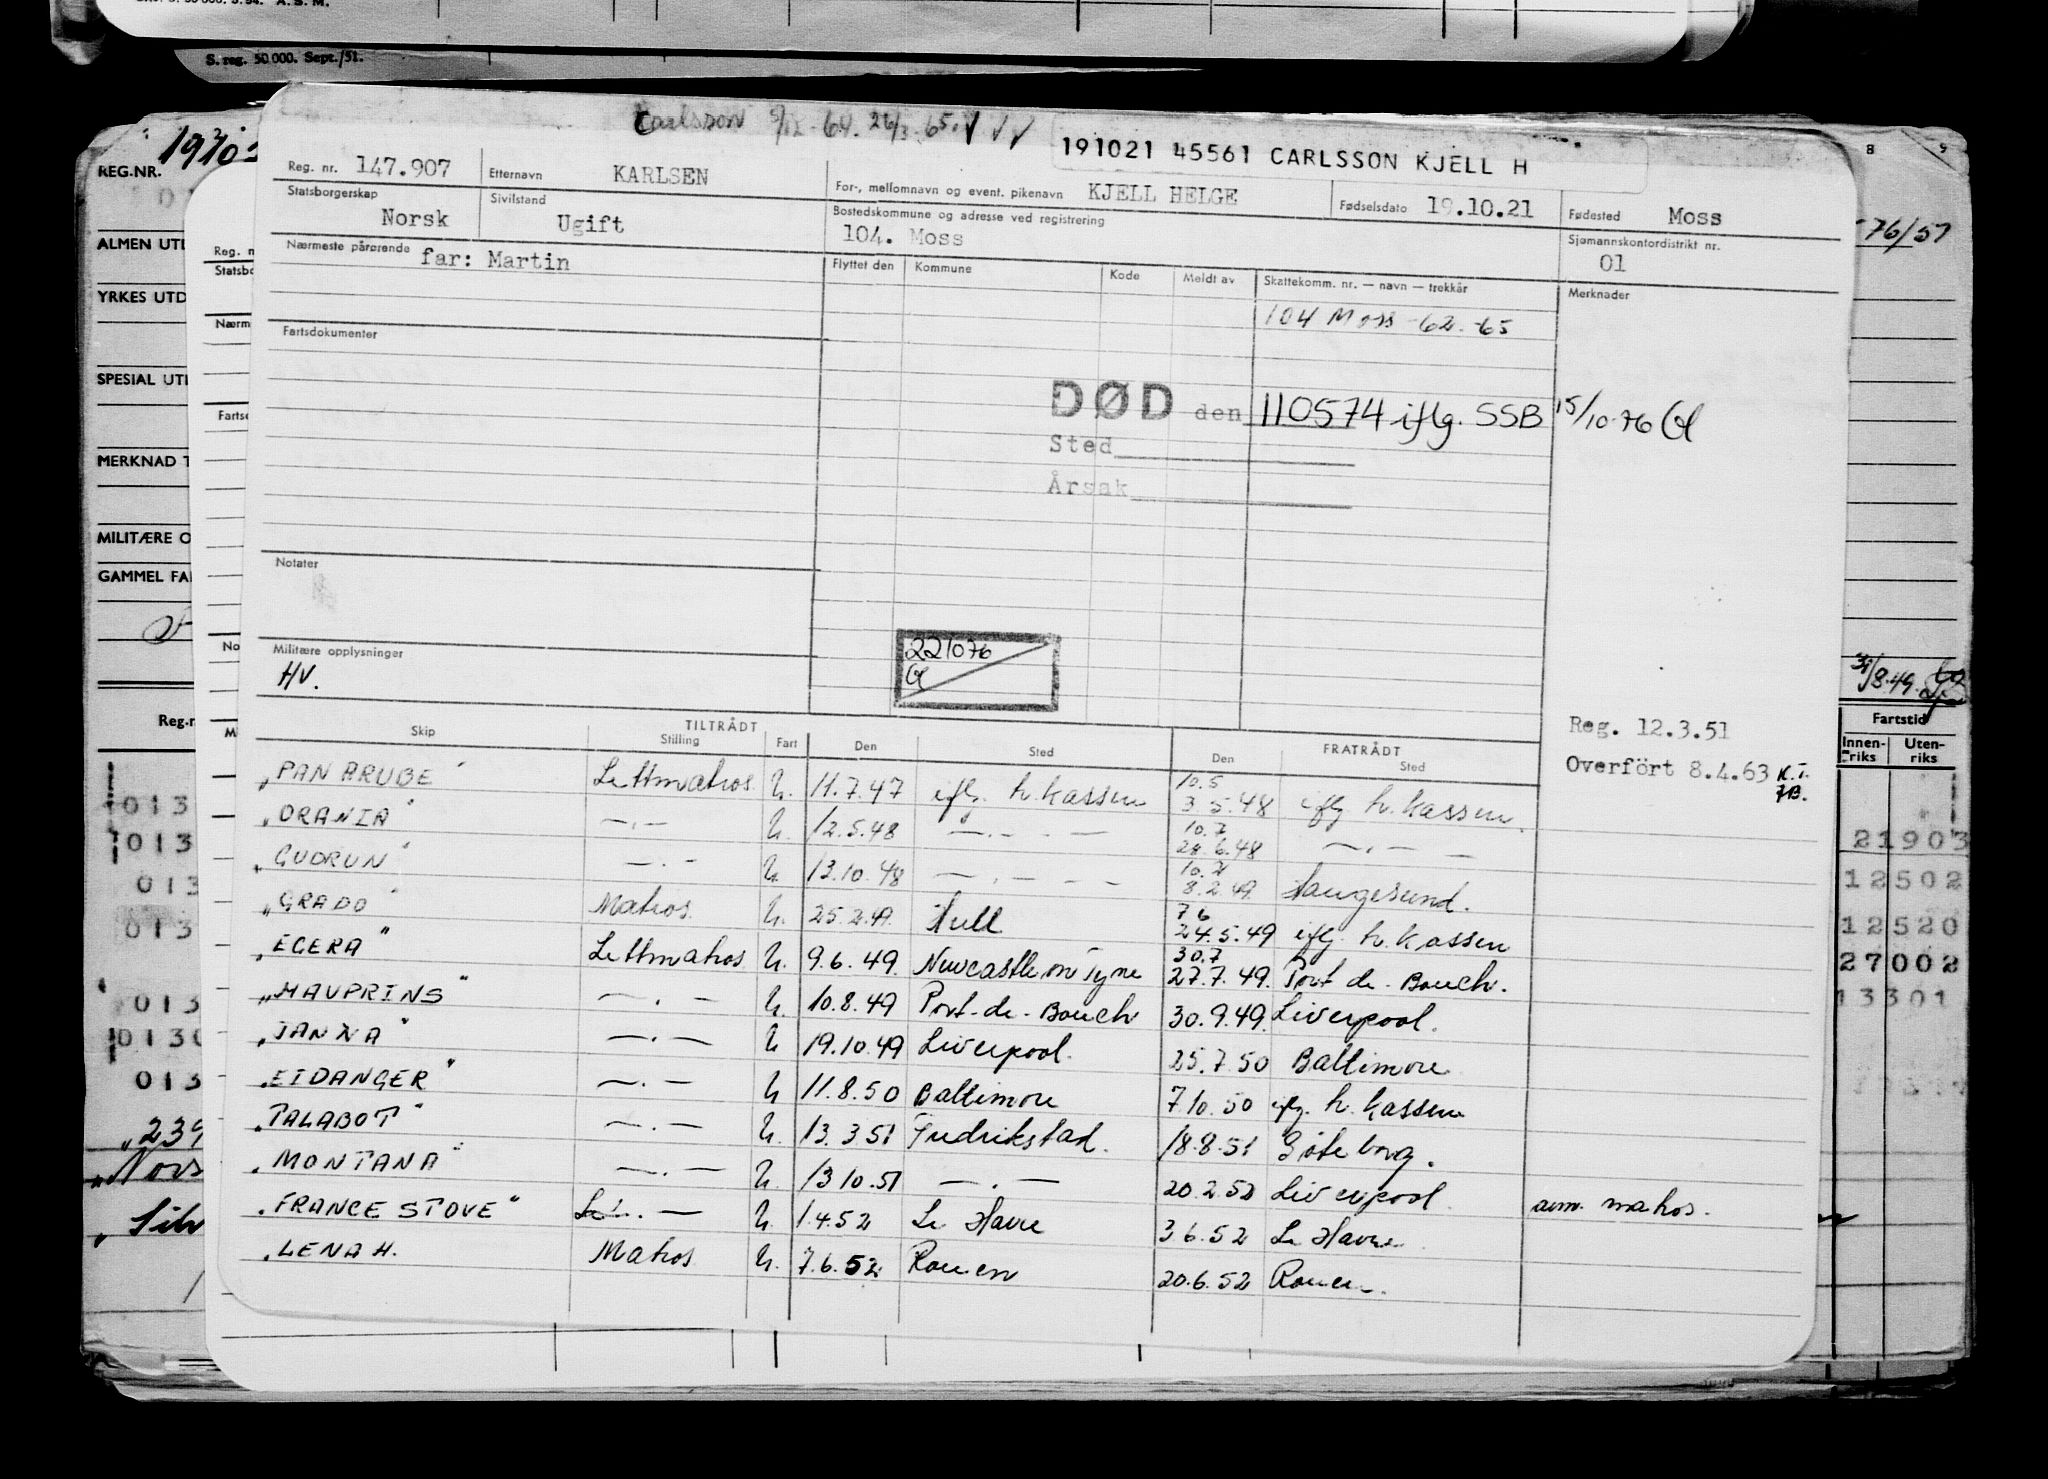 S. reg. 50 000. Sept./51.
Carlsson 5/IX-64. 26/3-65. V V V
191021 45561 CARLSSON KJELL H
REG.NR.
8 9
Reg. nr. 147.907 Etternavn KARLSEN For-, mellomnavn og event. pikenavn KJELL HELGE Fødselsdato 19.10.21 Fødested Moss
Statsborgerskap Norsk Sivilstand Ugift Bostedskommune og adresse ved registrering 104. Moss Sjømannskontordistrikt nr. 01
Nærmeste pårørende far: Martin Flyttet den Kommune Kode Meldt av Skattekomm. nr. — navn — trekkår Merknader
104 Moss -62 -65
Fartsdokumenter
DØD den 110574 iflg. SSB 15/10-76
Sted
Årsak
Notater
Militære opplysninger
HV.
221076
Reg. 12.3.51
Overfört 8.4.63 K.T.
TILTRÅDT FRATRÅDT
Skip Stilling Fart Den Sted Den Sted
"PAN BRUBE" Lettmatros U. 11.7.47 iflg. h. kassen 10.5 3.5.48 iflg. h. kassen.
"ORANIA" —.— U. 12.5.48 —.—.— 10.7 28.6.48 —.—
"GUDRUN" —.— U. 13.10.48 —.—.— 10.2 8.2.49 Haugesund.
"GRADO" Matros. U. 25.2.49. Hull 7.6 24.5.49 iflg. h. kassen
"EGERA" Lettmatros U. 9.6.49 Newcastle on Tyne 30.7 27.7.49. Port de-Bouch.
"HAVPRINS" —.— U. 10.8.49 Port-de-Bouch 30.9.49. Liverpool.
"JANNA" —.— U 19.10.49 Liverpool. 25.7.50 Baltimore
"EIDANGER" —.— U 11.8.50 Baltimore 7.10.50 iflg. h. kassen
"TALABOT" —.— U. 13.3.51 Fredrikstad. 18.8.51 Göteborg.
"MONTANA" —.— U. 13.10.51 —.— 20.2.52 Liverpool. anm. matros.
"FRANCE STOVE" —.— U. 1.4.52 Le Havre 3.6.52 Le Havre
"LENA H. Matros U. 7.6.52 Rouen 20.6.52 Rouen.
ALMEN UTD
YRKES UTD
SPESIAL UTD
MERKNAD T
MILITÆRE O
GAMMEL FA
Reg. n
Statsbo
Nærm
Fartsd
No
M
Reg.n
013
013
013
013
013
0130
013
"239
"Nors
76/57
31/8.49.
Fartstid
Innenriks Utenriks
21903
12502
12520
27002
13301